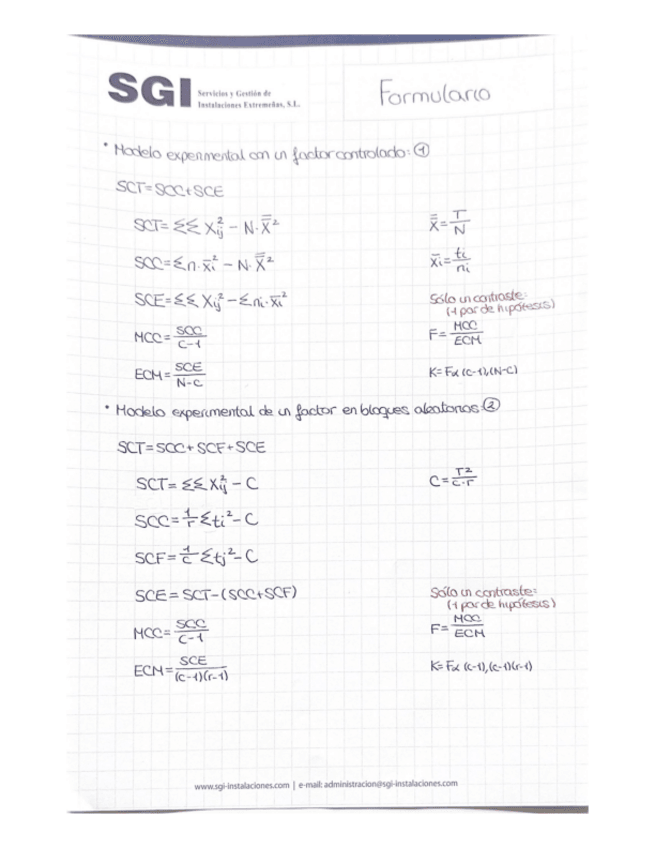 SGI Servicios y Gestión de
Instalaciones Extremeñas, S.L.
Formulario
• Modelo experimental con un factor controlado: ①
SCT=SCC+SCE
SCT= ΣΣ Xij² - N·X̿²
X̿ = T/N
SCC= Σn·x̄i² - N·X̿²
x̄i = ti/ni
SCE= ΣΣ Xij² - Σni·x̄i²
Sólo un contraste:
(1 par de hipótesis)
MCC= SCC/C-1
F= MCC/ECM
ECM= SCE/N-C
K= Fα (C-1),(N-C)
• Modelo experimental de un factor en bloques aleatorios: ②
SCT=SCC+SCF+SCE
SCT= ΣΣ Xij² - C
C= T²/c·r
SCC= 1/r Σti² - C
SCF= 1/c Σtj² - C
SCE= SCT-(SCC+SCF)
Sólo un contraste:
(1 par de hipótesis)
MCC= SCC/C-1
F= MCC/ECM
ECM= SCE/(c-1)(r-1)
K= Fα (c-1),(c-1)(r-1)
www.sgi-instalaciones.com | e-mail: administracion@sgi-instalaciones.com